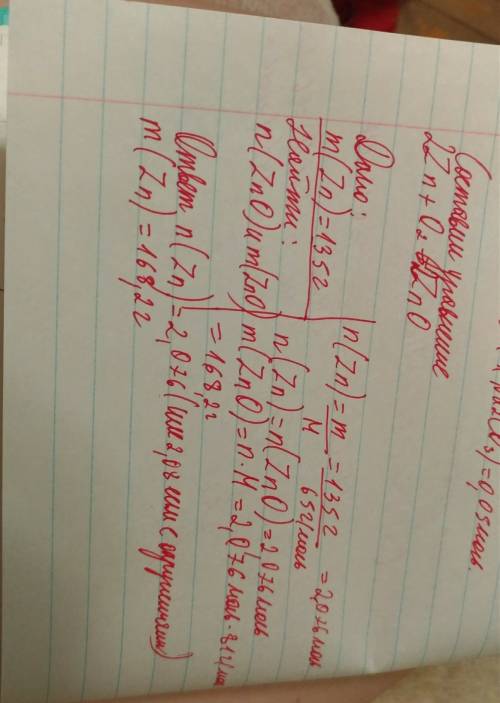 = 0,05 моль.
Составим уравнение
2Zn + O₂ = 2ZnO
Дано:
m(Zn) = 135г
Найти:
n(ZnO) и m(ZnO)
n(Zn) = m/M = 135г/65г/моль = 2,076 моль
n(Zn) = n(ZnO) = 2,076 моль
m(ZnO) = n·M = 2,076 моль·81г/мо
= 168,2г
Ответ n(Zn) = 2,076 (или 2,08 если с округлением)
m(Zn) = 168,2г